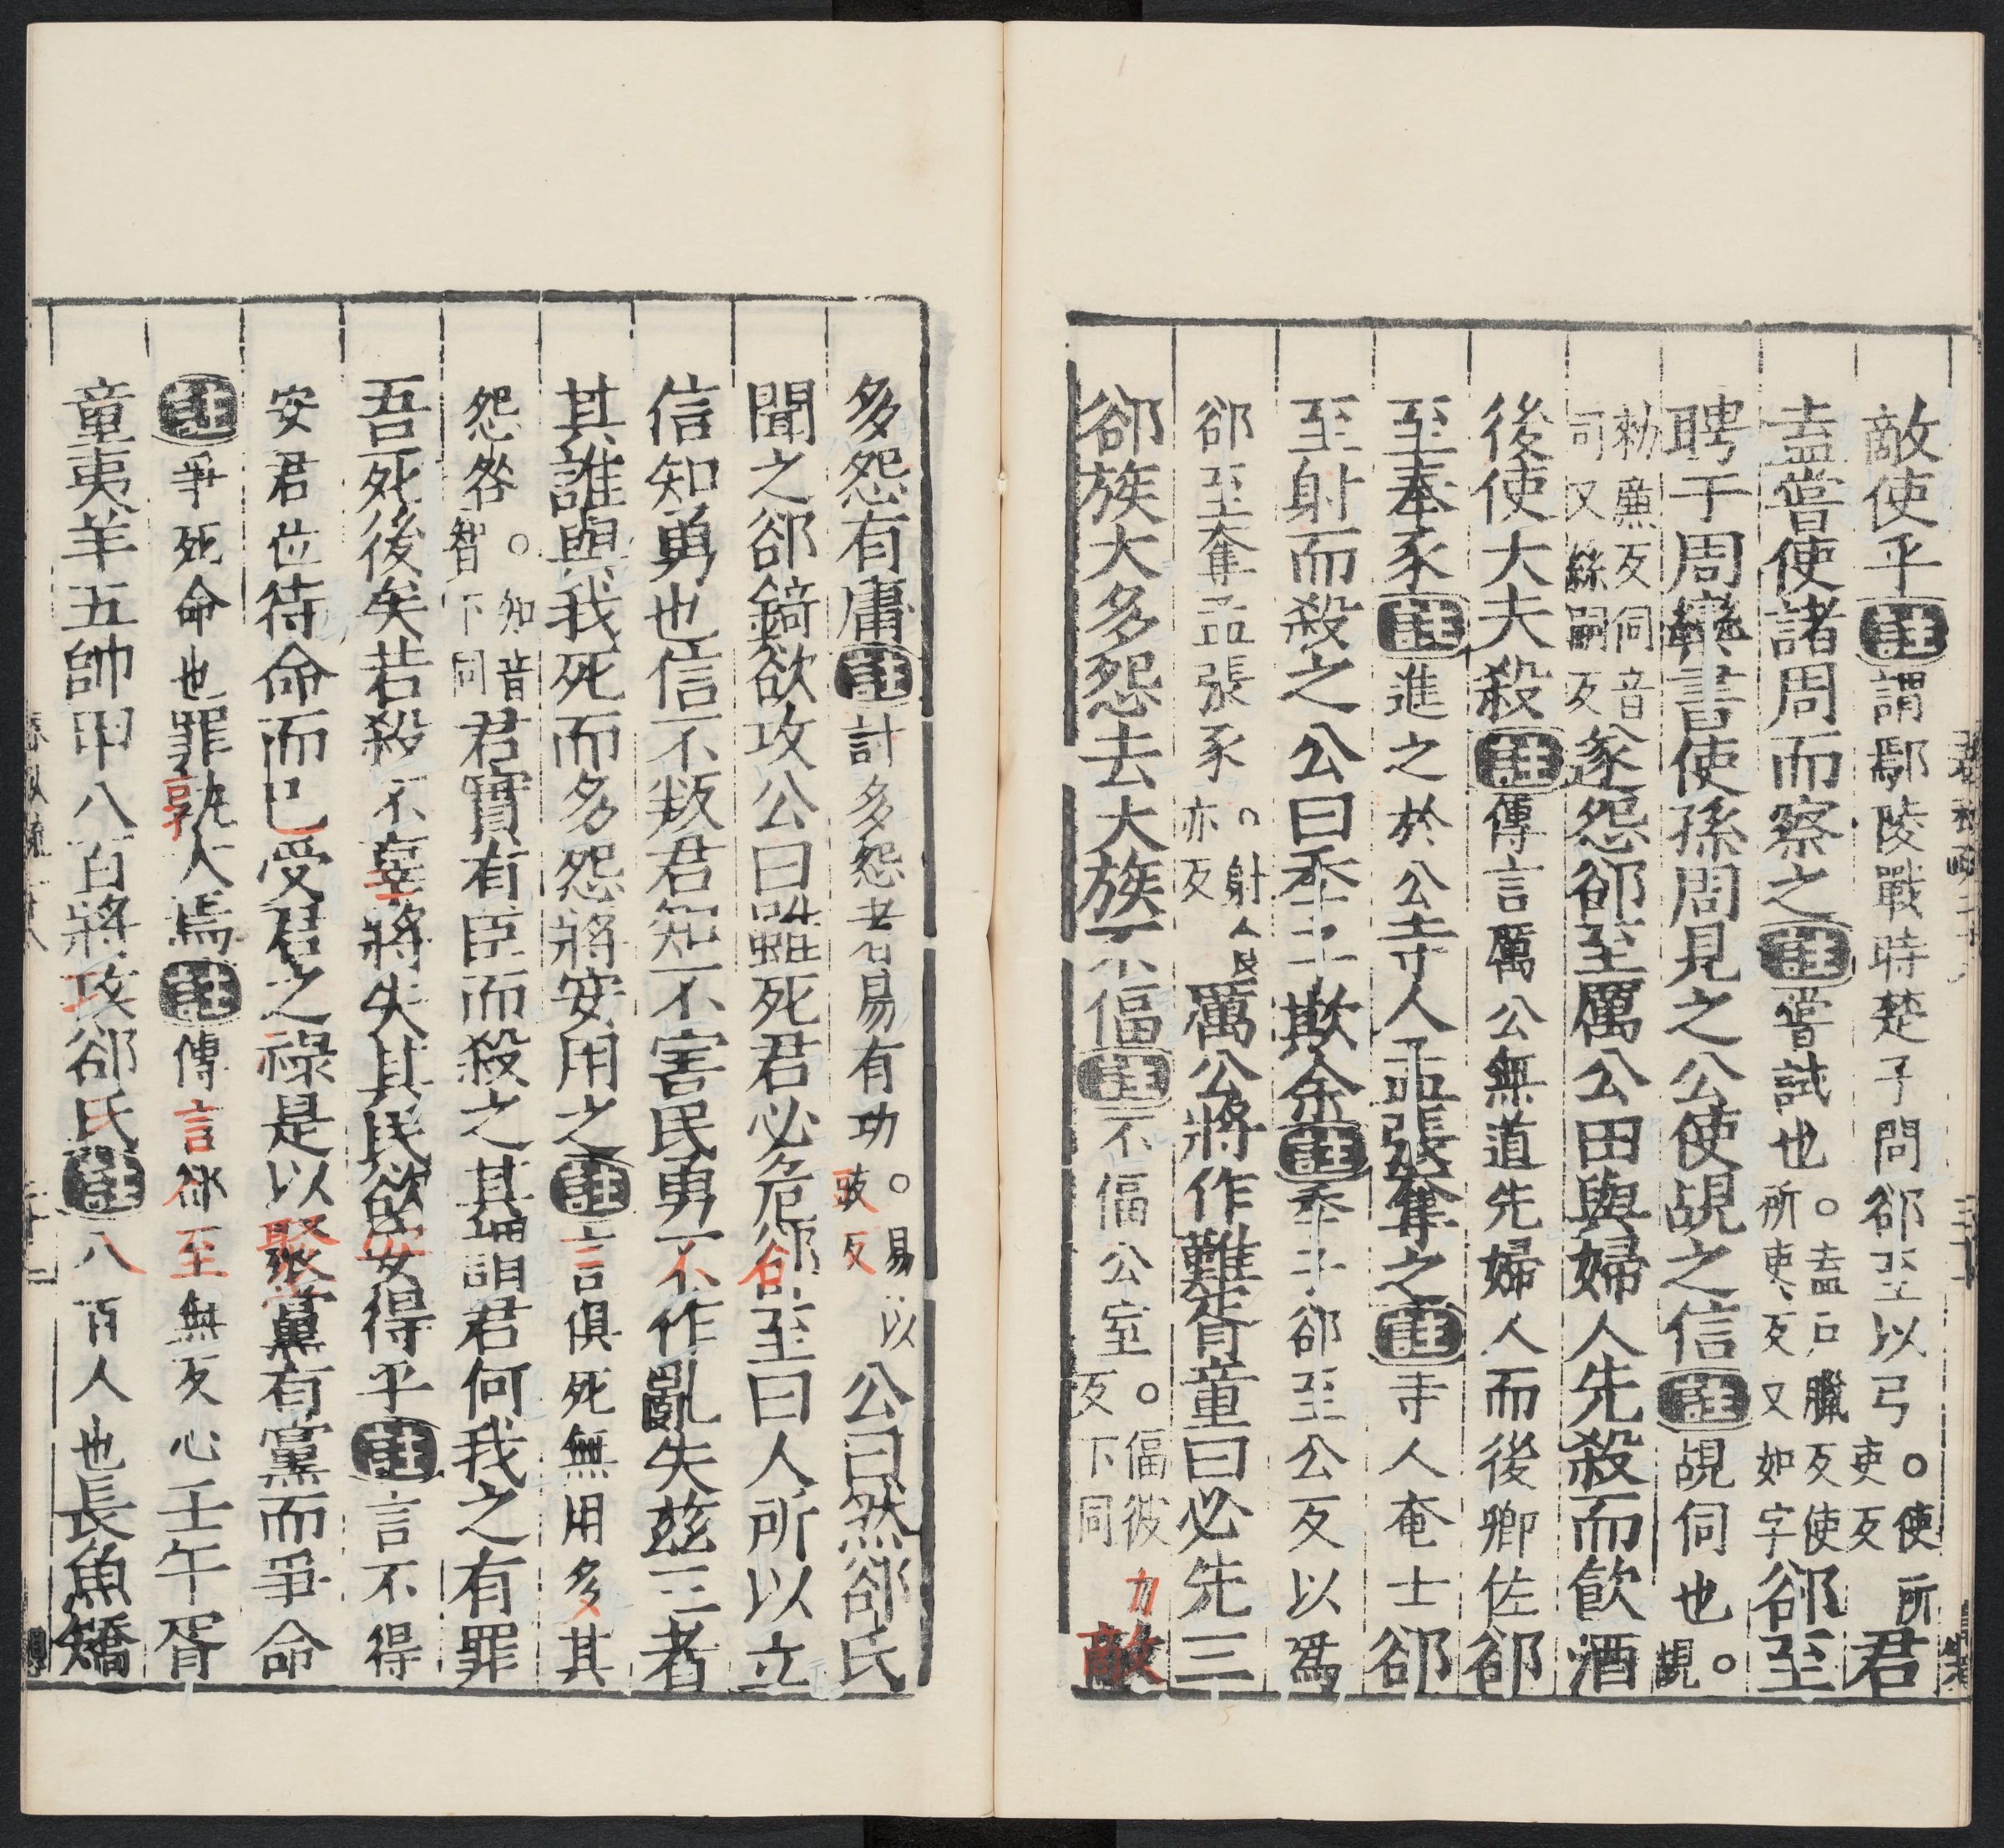 敵使乎註謂鄢陵戰時楚子問郤至以弓○使所吏反君
盍嘗使諸周而察之註嘗試也○盍戶臘反使所吏反又如字郤至
聘于周欒書使孫周見之公使覘之信註覘伺也○覘
勑廉反伺音司又絲嗣反遂怨郤至厲公田與婦人先殺而飲酒
後使大夫殺註傳言厲公無道先婦人而後卿佐郤
至奉豕註進之於公寺人孟張奪之註寺人奄士郤
至射而殺之公曰季子欺余註季子郤至公反以為
郤至奪孟張豕○射食亦反厲公將作難胥童曰必先三
郤族大多怨去大族不偪註不偪公室○偪彼力反下同敵
多怨有庸註討多怨者易有功○易以豉反公曰然郤氏
聞之郤錡欲攻公曰雖死君必危郤至曰人所以立
信知勇也信不叛君知不害民勇不作亂失茲三者
其誰與我死而多怨將安用之註言俱死無用多其
怨咎○知音智下同君實有臣而殺之其謂君何我之有罪
吾死後矣若殺不辜將失其民欲安得乎註言不得
安君位待命而已受君之祿是以聚黨有黨而爭命
註爭死命也罪孰大焉註傳言郤至無反心壬午胥
童夷羊五帥甲八百將攻郤氏註八百人也長魚矯